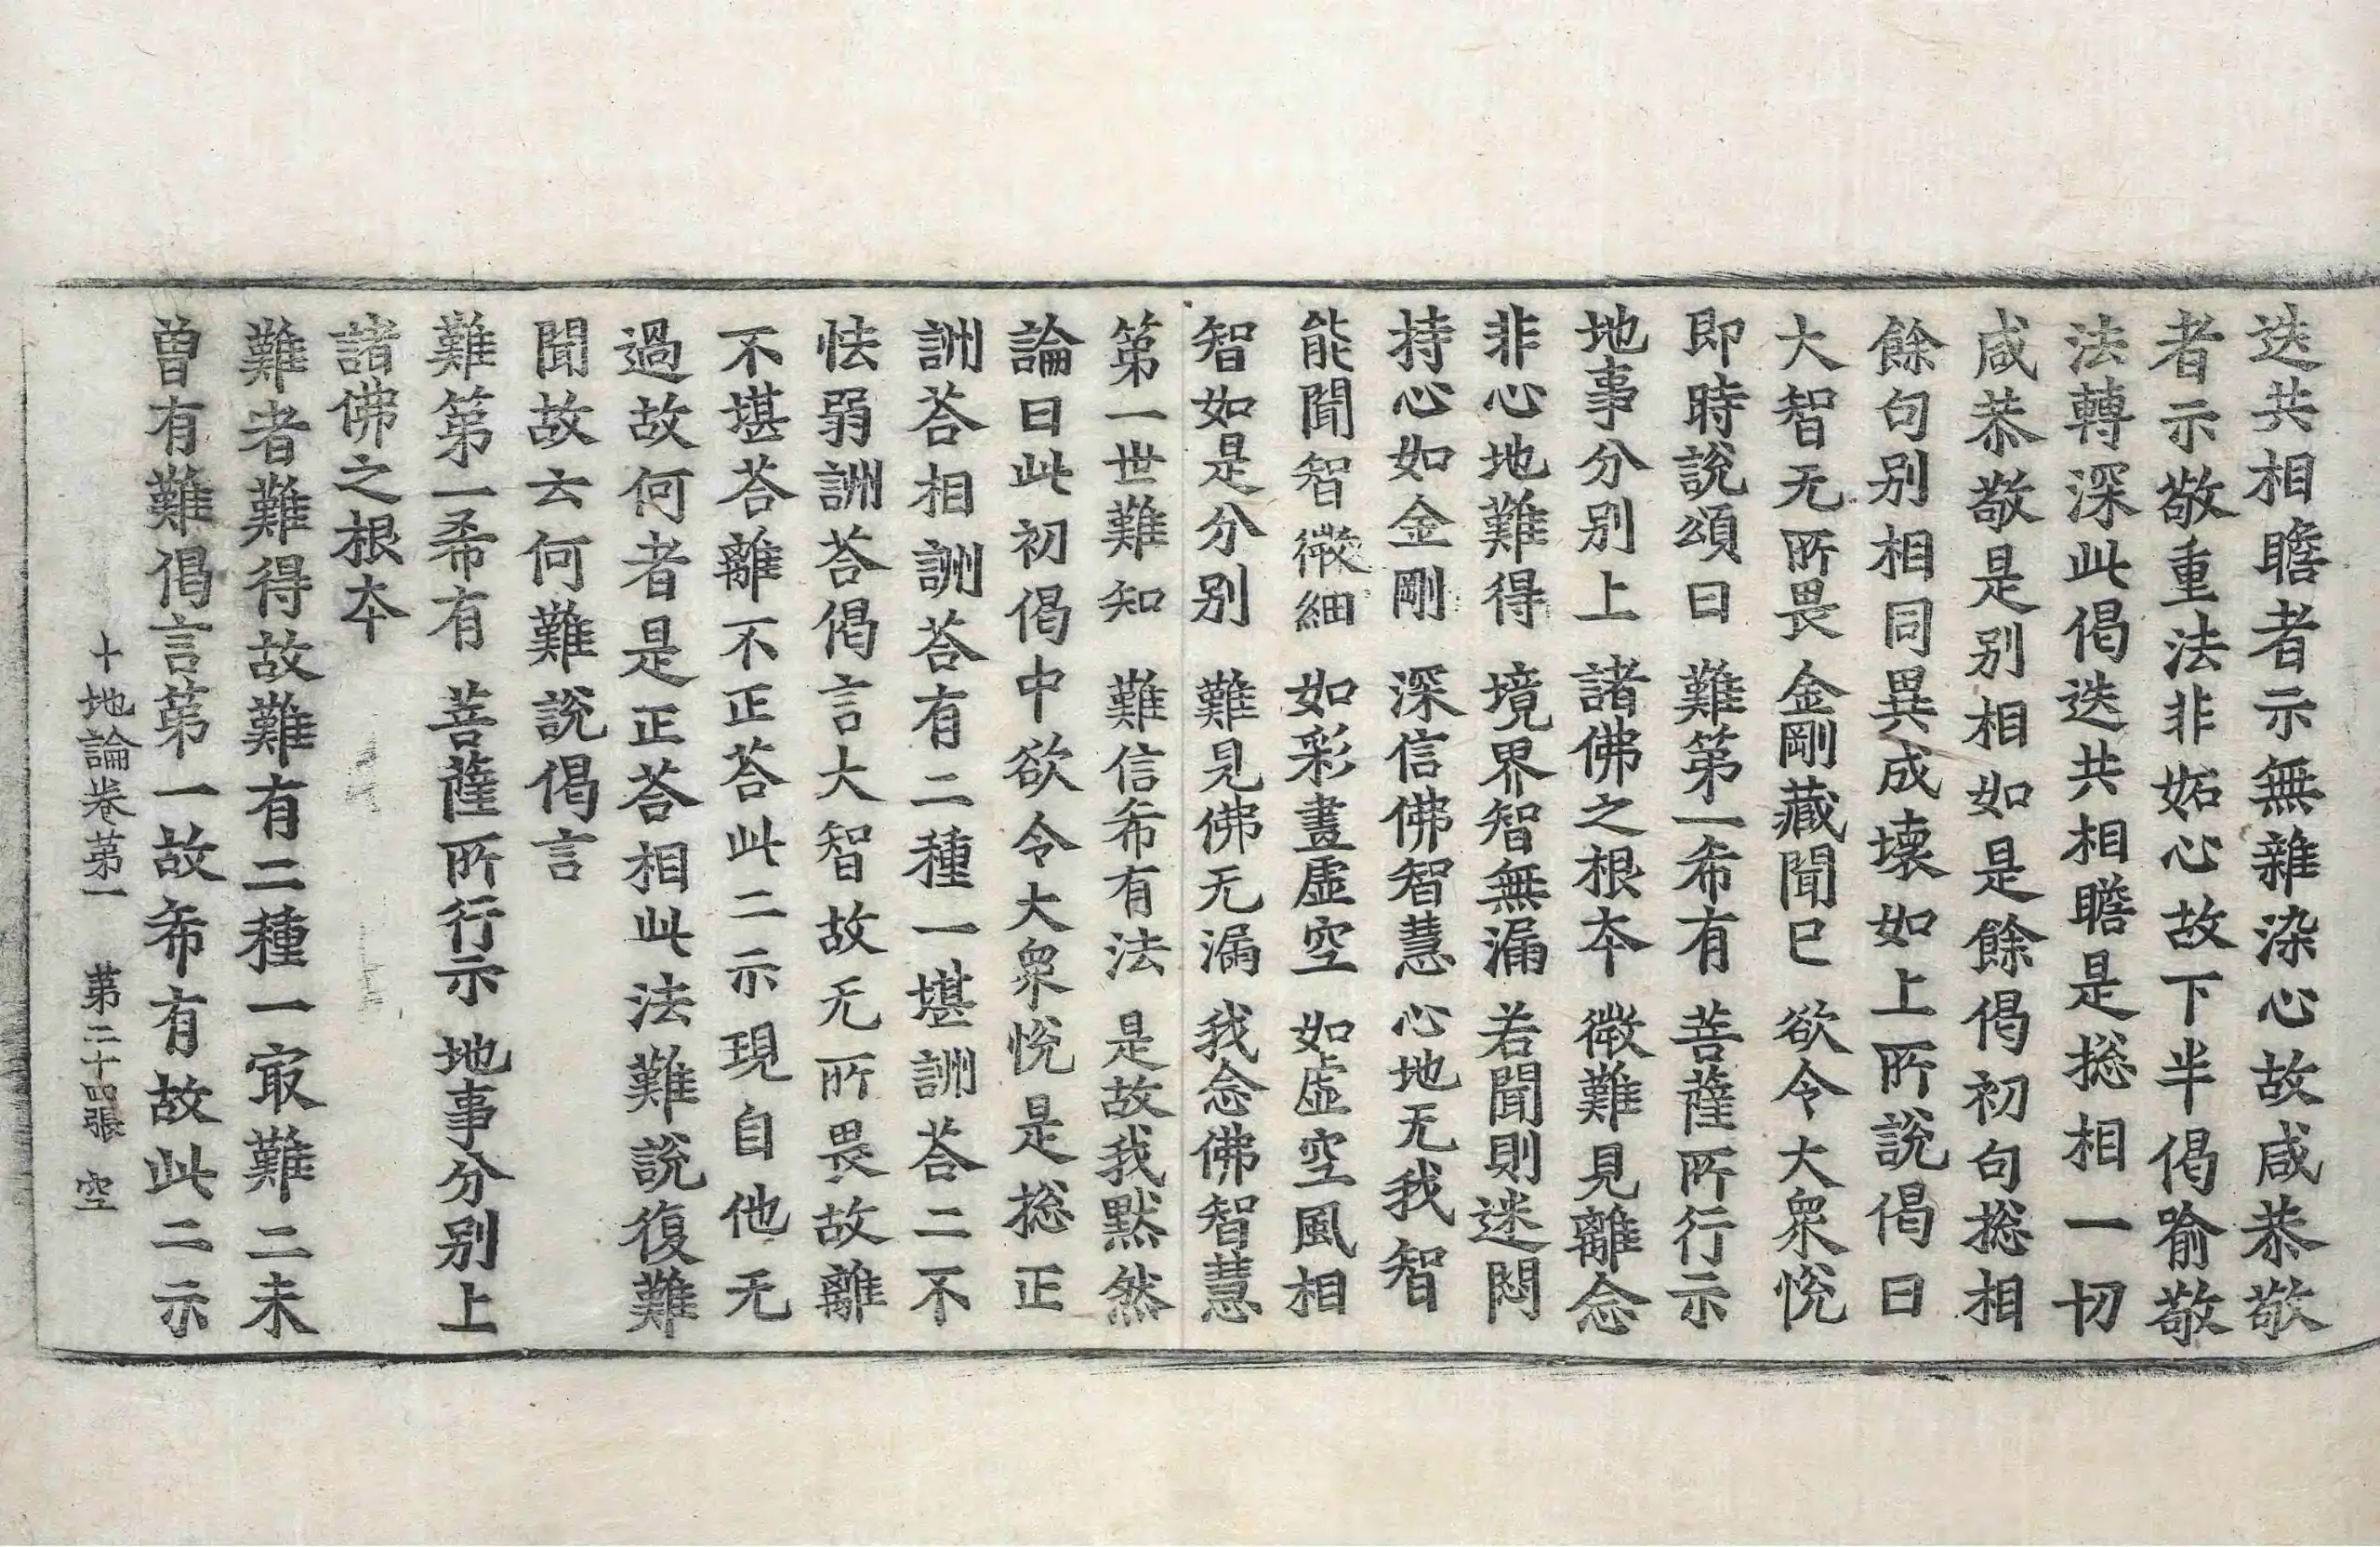 迭共相瞻者示無雜染心故咸恭敬
者示敬重法非妬心故下半偈喻敬
法轉深此偈迭共相瞻是捴相一切
咸恭敬是别相如是餘偈初句捴相
餘句别相同異成壞如上所說偈曰
大智无所畏 金剛藏聞已 欲令大衆悅
即時說頌曰 難第一希有 菩薩所行示
地事分别上 諸佛之根夲 微難見離念
非心地難得 境界智無漏 若聞則迷悶
持心如金剛 深信佛智慧 心地无我智
能聞智微細 如彩畫虛空 如虛空風相
智如是分别 難見佛无漏 我念佛智慧
第一世難知 難信希有法 是故我黙然
論曰此初偈中欲令大衆悅是捴正
詶荅相詶荅有二種一堪詶荅二不
怯弱詶荅偈言大智故无所畏故離
不堪荅離不正荅此二示現自他无
過故何者是正荅相此法難說復難
聞故云何難說偈言
難第一希有 菩薩所行示 地事分别上
諸佛之根夲
難者難得故難有二種一㝡難二未
曽有難偈言第一故希有故此二示
十地論卷第一 第二十四張 空